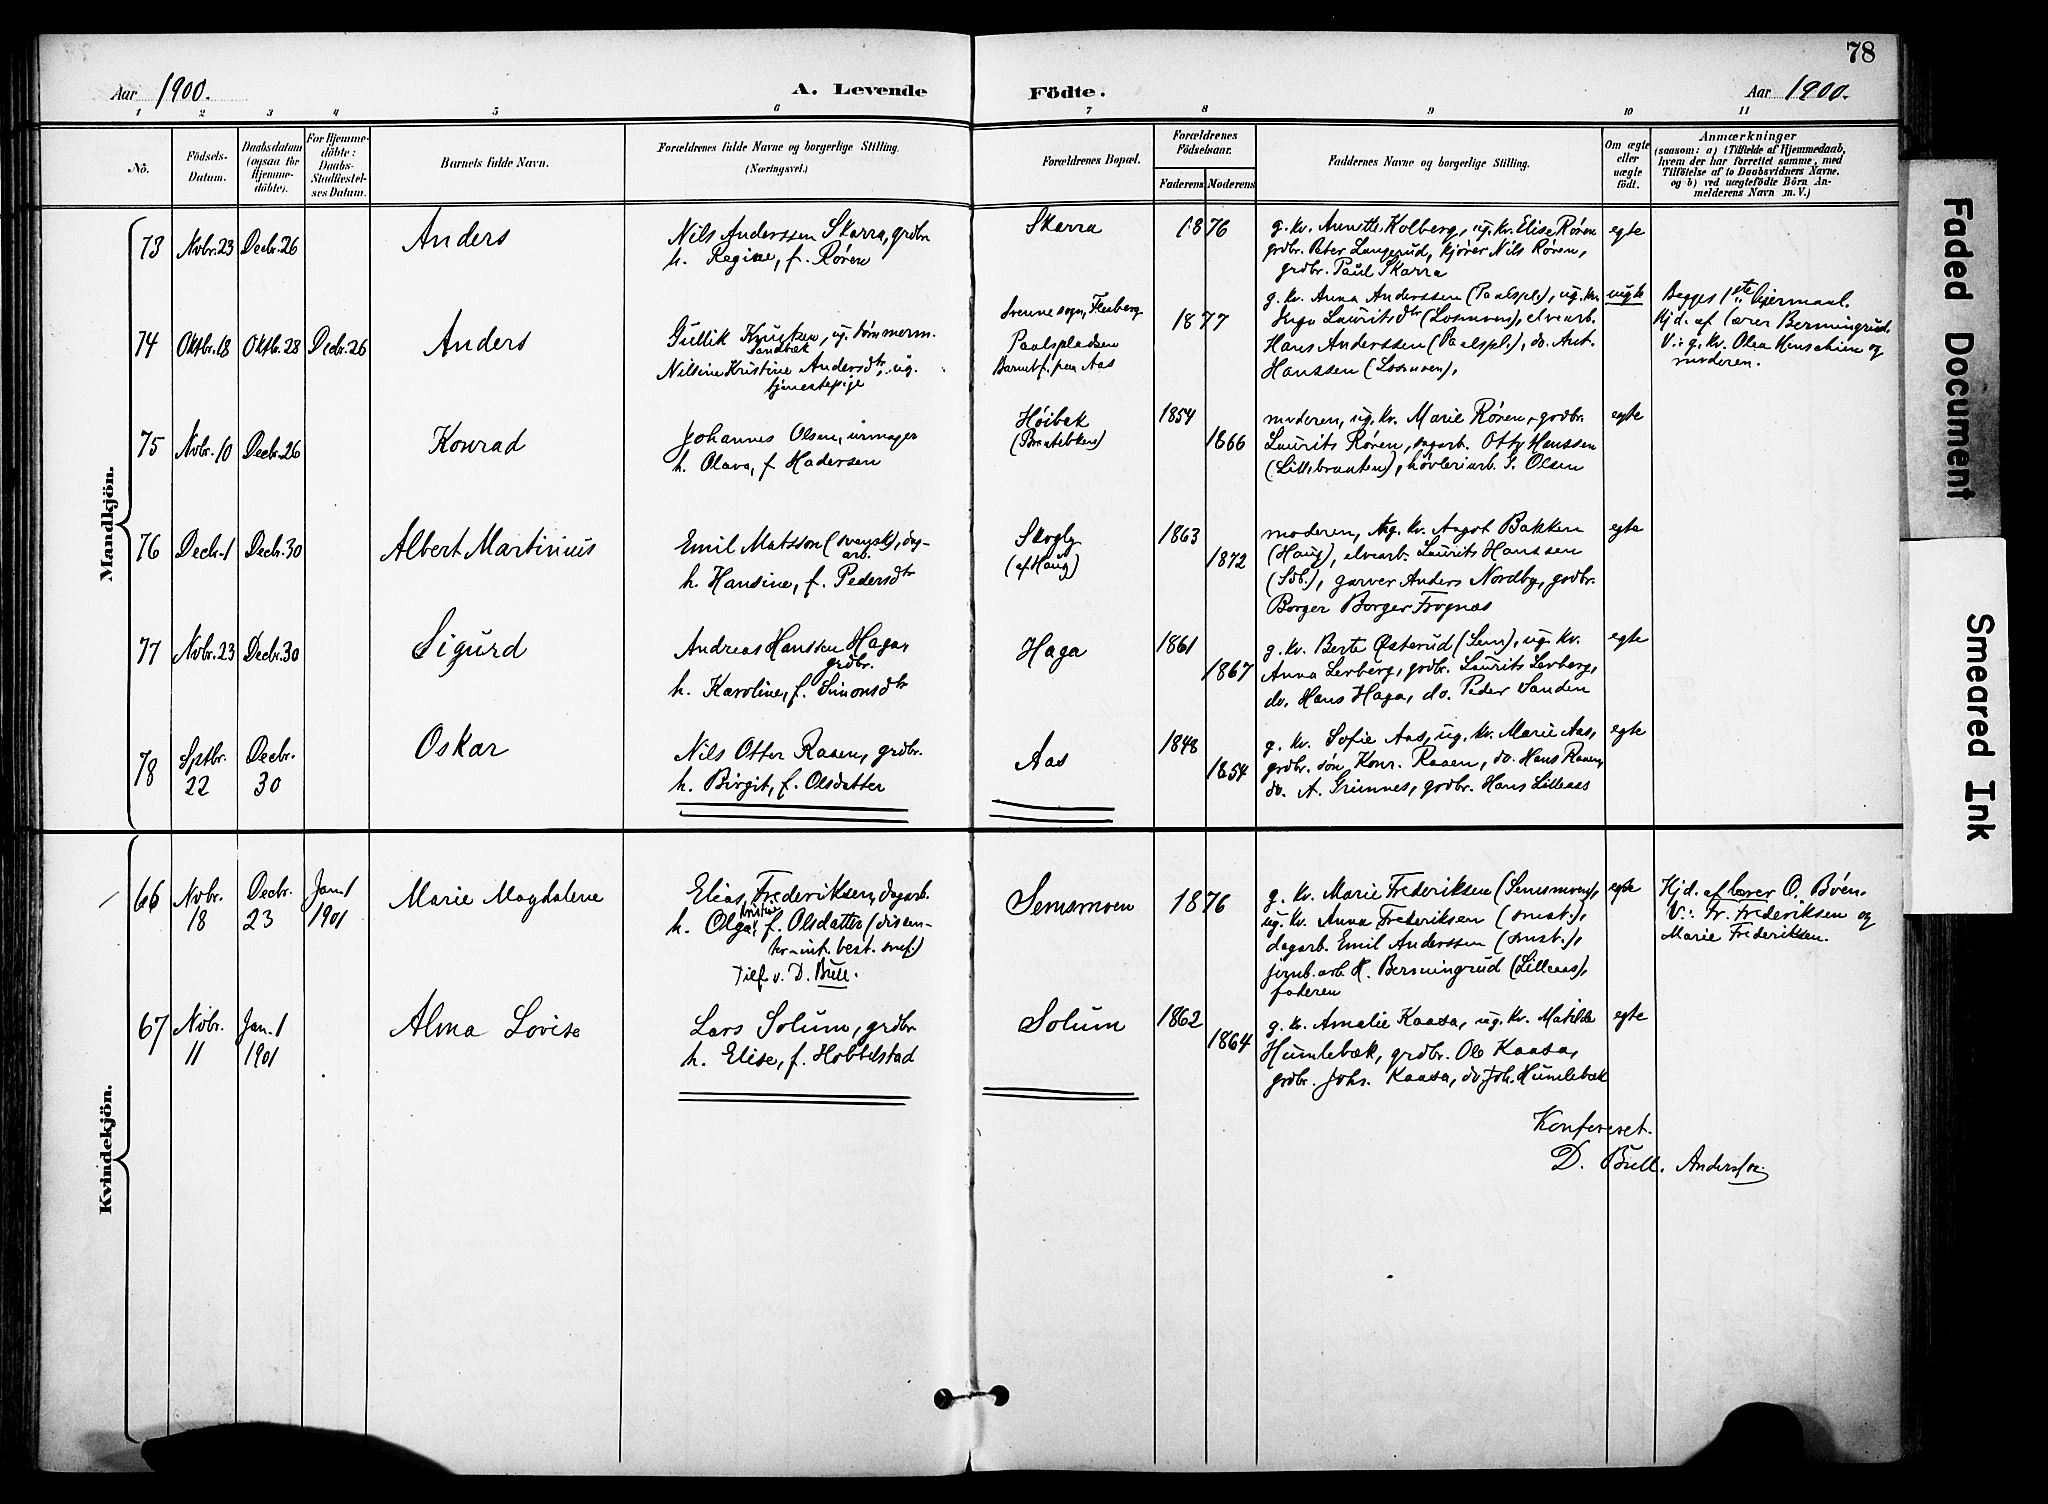 78
Aar 1900. A. Levende Födte. Aar 1900.
1 2 3 4 5 6 7 8 9 10 11
No. Födsels-Datum. Daabsdatum (ogsaa for Hjemme-döbte). For Hjemme-döbte: Daabs-Stadfæstel-ses Datum. Barnets fulde Navn. Forældrenes fulde Navne og borgerlige Stilling. (Næringsvei.) Forældrenes Bopæl. Forældrenes Födselsaar. Faderens Moderens Faddernes Navne og borgerlige Stilling. Om ægte eller uægte födt. Anmærkninger (saasom: a) i Tilfælde af Hjemmedaab, hvem der har forrettet samme, med Tilföielse af to Daabsvidners Navne, og b) ved uægtefödte Börn An-melderens Navn m. V.)
Mandkjön.
73 Novbr. 23 Decbr. 26 Anders
Nils Anderssen Skarra, grdbr.
h. Regine, f. Røren
Skarra 1876
g. kv. Annette Kolberg, ug. kv. Elise Røren
grdbr. Peter Langerud, kjører Nils Røren,
grdbr. Paul Skarra
egte
74 Oktbr. 18 Oktbr. 28 Decbr. 26 Anders
Gullik Knutsen, ug. tømmerm.
Sandbæk
Nilsine Kristine Andersdtr, ug.
tjenestepige
Svenne sogn, Flesberg
Paalspladsen
Barnet f. paa Aas
1877
g. kv. Anna Anderssen (Paalspl.), ug. kv.
Inga Lauritsdtr (Losmoen), elvearb.
Hans Anderssen (Paalspl.), do. Ant.
Hanssen (Losmoen),
uegte
Begges 1ste leiermaal.
Hjd. af lærer Bermingrud.
V.: g. kv. Olea og
moderen.
75 Novbr. 10 Decbr. 26 Konrad
Johannes Olsen, urmager
h. Olava, f. Hadersen
Høibek
1854
1866
moderen, ug. kv. Marie Røren, grdbr.
Laurits Røren, dagarb. Otty Hanssen
(Lillebraaten), høvleriarb. G. Olsen
egte
76 Decbr. 1 Decbr. 30 Albert Martinius
Emil Matsson (svensk), dag-
arb.
h. Hansine, f. Pedersdtr
Skogly
(af Haug)
1863
1872
moderen, ug. kv. Aagot Bakken
(Haug), elvearb. Laurits Hanssen
(Sdb.), garver Anders Nordby, grdbr.
Borger Borger Frognæs
egte
77 Novbr. 23 Decbr. 30 Sigurd
Andreas Hanssen Haga,
grdbr.
h. Karoline, f. Simonsdtr
Haga
1861
1867
g. kv. Berte Østerud (Sem), ug. kv.
Anna Lerberg, grdbr. Laurits Lerberg,
do. Hans Haga, do. Peder Sanden
egte
78 Septbr. 22 Decbr. 30 Oskar
Nils Otter Raaen, grdbr.
h. Birgit, f. Olsdatter
Aas
1848
1854
g. kv. Sofie Aas, ug. kv. Marie Aas,
grdbr. søn Konr. Raaen, do. Hans Raaen,
do. A. Grimnes, grdbr. Hans Lilleaas
egte
Kvindekjön.
66 Novbr. 18 Decbr. 23 Jan. 1 1901 Marie Magdalene
Elias Frederiksen, dagarb.
h. Olga Kristine f. Olsdatter (dissen-
ter
Tilf. v. D. Bull.
Semsmoen 1876
g. kv. Marie Frederiksen (Semsmoen),
ug. kv. Anna Frederiksen (smst.),
dagarb. Emil Anderssen (smst.),
jernb. arb. H. Bermingrud (Lilleaas),
faderen
egte
Hjd. af lærer O. Bøen.
V.: Fr. Frederiksen og
Marie Frederiksen.
67 Novbr. 11 Jan. 1 1901 Alma Lovise
Lars Solum, grdbr
h. Elise, f. Hobbelstad
Solum
1862
1864
g. kv. Amalie Kaasa, ug. kv. Matilde
Humlebæk, grdbr. Ole Kaasa,
grdbr. Johs. Kaasa, do Joh. Humlebæk
egte
Konfereret.
D. Bull.
Faded Document
Smeared Ink